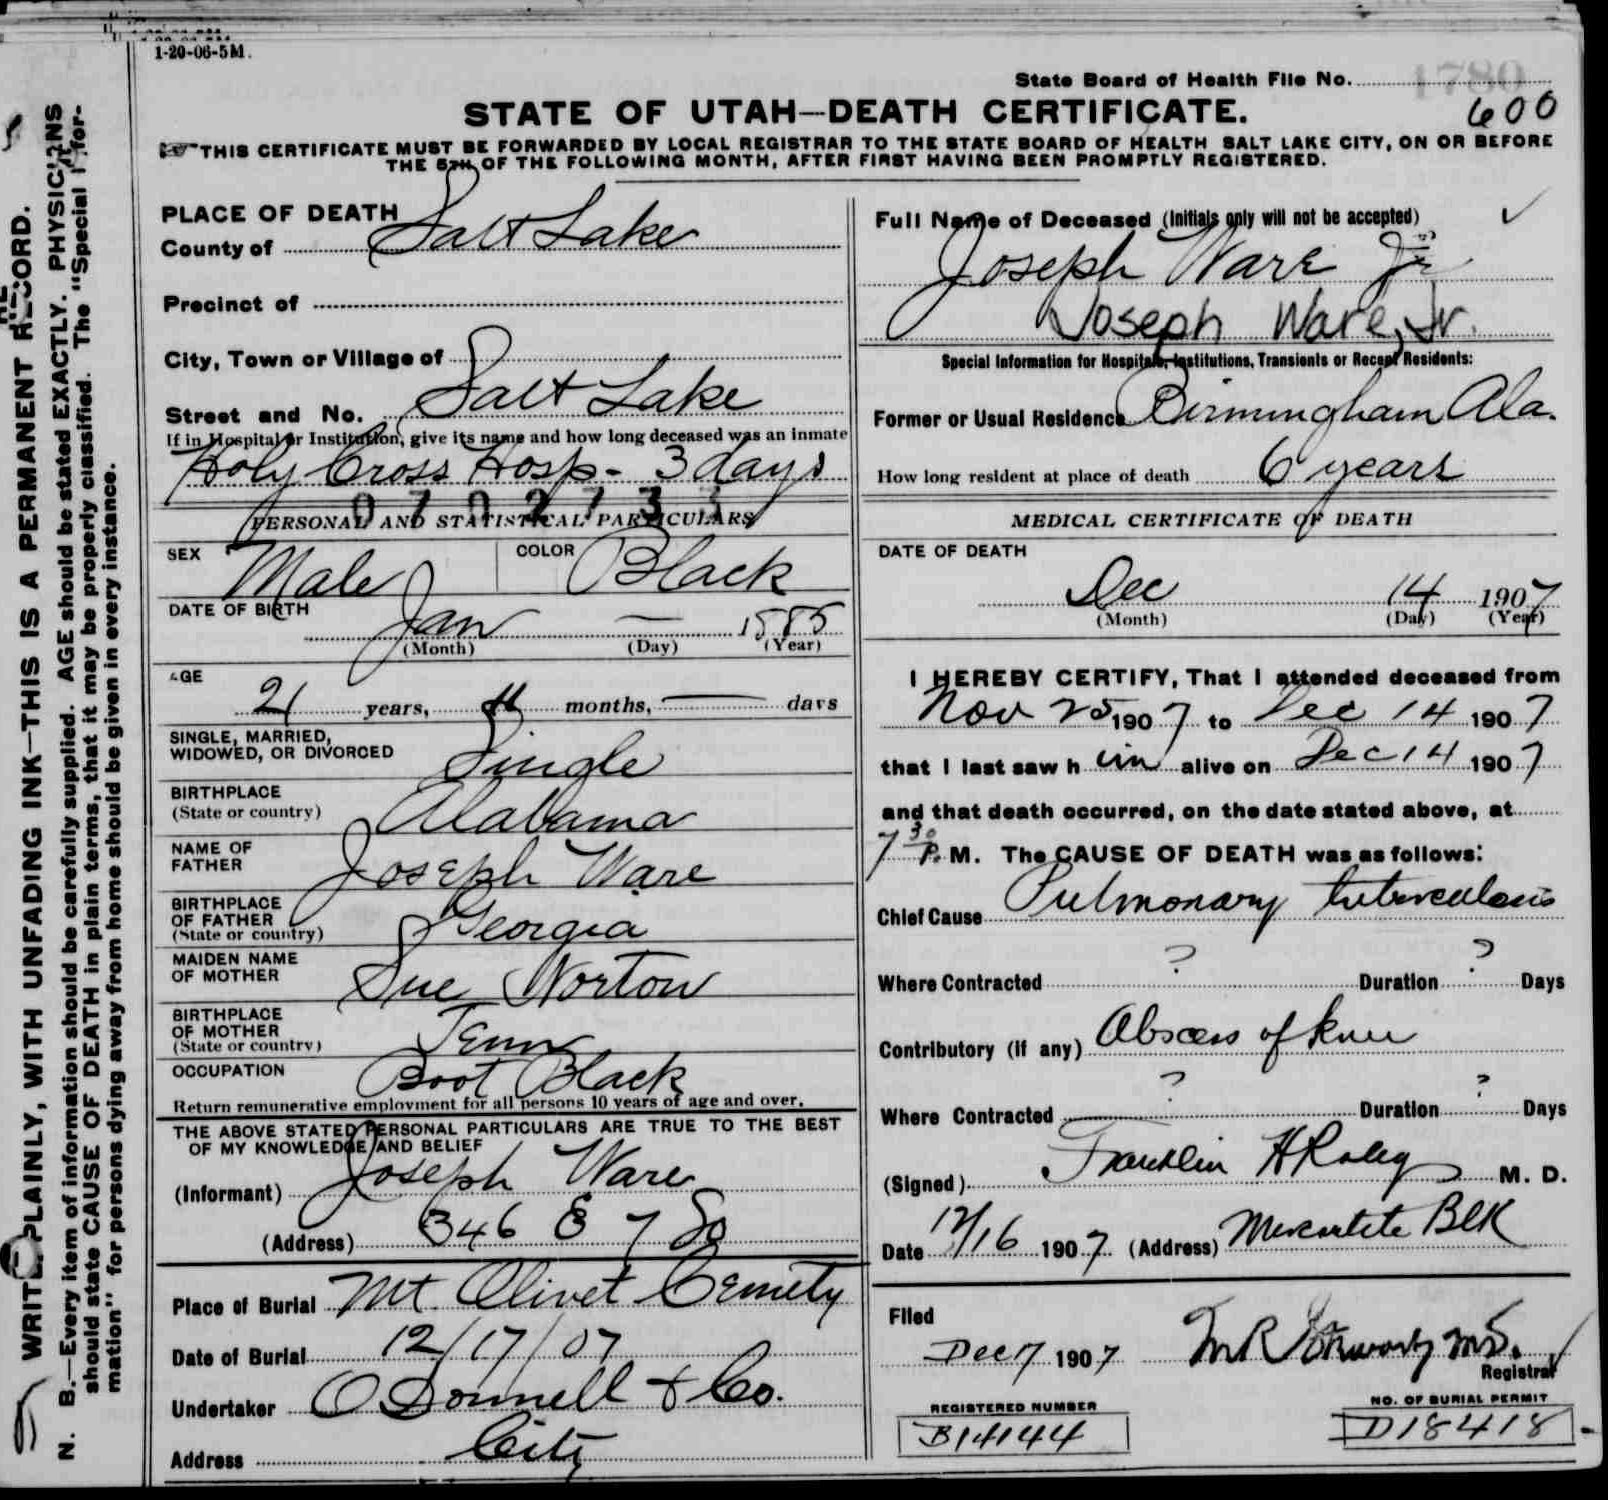 1-20-06-5M.
State Board of Health File No. 1780
600
STATE OF UTAH—DEATH CERTIFICATE.
THIS CERTIFICATE MUST BE FORWARDED BY LOCAL REGISTRAR TO THE STATE BOARD OF HEALTH SALT LAKE CITY, ON OR BEFORE
THE 5TH OF THE FOLLOWING MONTH, AFTER FIRST HAVING BEEN PROMPTLY REGISTERED.
WRITE PLAINLY, WITH UNFADING INK—THIS IS A PERMANENT RECORD.
N. B.—Every item of information should be carefully supplied. AGE should be stated EXACTLY. PHYSICIANS
should state CAUSE OF DEATH in plain terms, that it may be properly classified. The "Special Infor-
mation" for persons dying away from home should be given in every instance.
PLACE OF DEATH
County of Salt Lake
Precinct of
City, Town or Village of
Street and No. Salt Lake
If in Hospital or Institution, give its name and how long deceased was an inmate
Holy Cross Hosp- 3 days
0702733
PERSONAL AND STATISTICAL PARTICULARS
SEX Male COLOR Black
DATE OF BIRTH
Jan — 1885
(Month) (Day) (Year)
AGE
21 years, months, — days
SINGLE, MARRIED,
WIDOWED, OR DIVORCED Single
BIRTHPLACE
(State or country) Alabama
NAME OF
FATHER Joseph Ware
BIRTHPLACE
OF FATHER
(State or country) Georgia
MAIDEN NAME
OF MOTHER Sue Norton
BIRTHPLACE
OF MOTHER
(State or country) Tenn
OCCUPATION Boot Black
Return remunerative employment for all persons 10 years of age and over.
THE ABOVE STATED PERSONAL PARTICULARS ARE TRUE TO THE BEST
OF MY KNOWLEDGE AND BELIEF
(Informant) Joseph Ware
(Address) 346 E 7 So
Place of Burial Mt. Olivet Cemety
Date of Burial 12/17/07
Undertaker O Donnell & Co.
Address City
Full Name of Deceased (Initials only will not be accepted)
Joseph Ware Jr
Joseph Ware, Jr.
Special Information for Hospitals, Institutions, Transients or Recent Residents:
Former or Usual Residence Birmingham Ala.
How long resident at place of death 6 years
MEDICAL CERTIFICATE OF DEATH
DATE OF DEATH
Dec 14 1907
(Month) (Day) (Year)
I HEREBY CERTIFY, That I attended deceased from
Nov 25 1907 to Dec 14 1907
that I last saw him alive on Dec 14 1907
and that death occurred, on the date stated above, at
7 30 P. M. The CAUSE OF DEATH was as follows:
Chief Cause Pulmonary tuberculosis
Where Contracted ? Duration ? Days
Contributory (if any) Abscess of knee
Where Contracted ? Duration ? Days
(Signed) Franklin H Raley M. D.
Date 12/16 1907 (Address) Mercantile Blk
Filed
Dec 17 1907 M.D.
Registrar
REGISTERED NUMBER
B14144
NO. OF BURIAL PERMIT
D18418